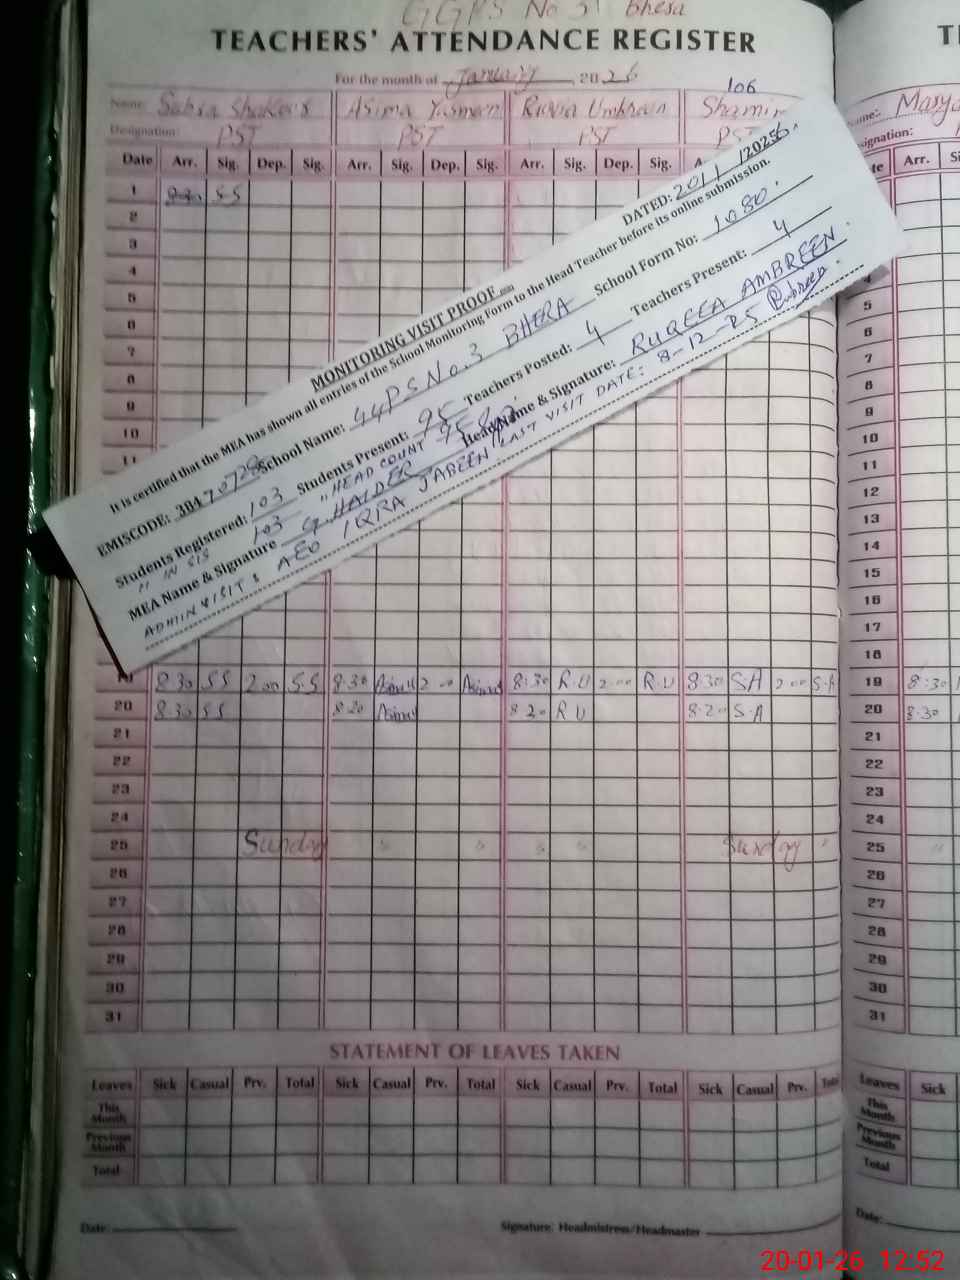 GGPS No 3 Bhera
TEACHERS' ATTENDANCE REGISTER
For the month of January, 2026
106
Name: Sabra Shakour Asima Yasmeen Ruqia Umbreen Shamim
Designation: PST PST PST PST
Date Arr. Sig. Dep. Sig. Arr. Sig. Dep. Sig. Arr. Sig. Dep. Sig.
1 8:30 SS
2
3
4
5
6
7
8
9
10
11
MONITORING VISIT PROOF
DATED: 20/1/2026
It is certified that the MEA has shown all entries of the School Monitoring Form to the Head Teacher before its online submission.
EMISCODE: 38470728 School Name: GGPS No. 3 BHERA School Form No: 1080
Students Registered: 103 Students Present: 95 Teachers Posted: 4 Teachers Present: 4
" IN SIS 103 "HEAD COUNT 95
MEA Name & Signature G. HAIDER Head Name & Signature: RUQEEA AMBREEN
ADMIN VISIT: AEO IQRA JABEEN LAST VISIT DATE: 8-12-25
19 8 30 SS 2 00 S.S 8-30 Asima 2 00 Asima 8:30 R.U 2-00 R.U 830 SA 2 00 S.A
20 8 30 SS 8 20 Asima 8 20 R U 8-20 S.A
21
22
23
24
25 Sunday " " " " Sunday "
26
27
28
29
30
31
STATEMENT OF LEAVES TAKEN
Leaves Sick Casual Prv. Total Sick Casual Prv. Total Sick Casual Prv. Total Sick Casual Prv. Total
This Month
Previous Month
Total
Date: Signature: Headmistress/Headmaster
Arr.
5
6
7
8
9
10
11
12
13
14
15
16
17
18
19 8:30
20 8:30
21
22
23
24
25 "
26
27
28
29
30
31
Leaves Sick
This Month
Previous Month
Total
Date:
20-01-26 12:52